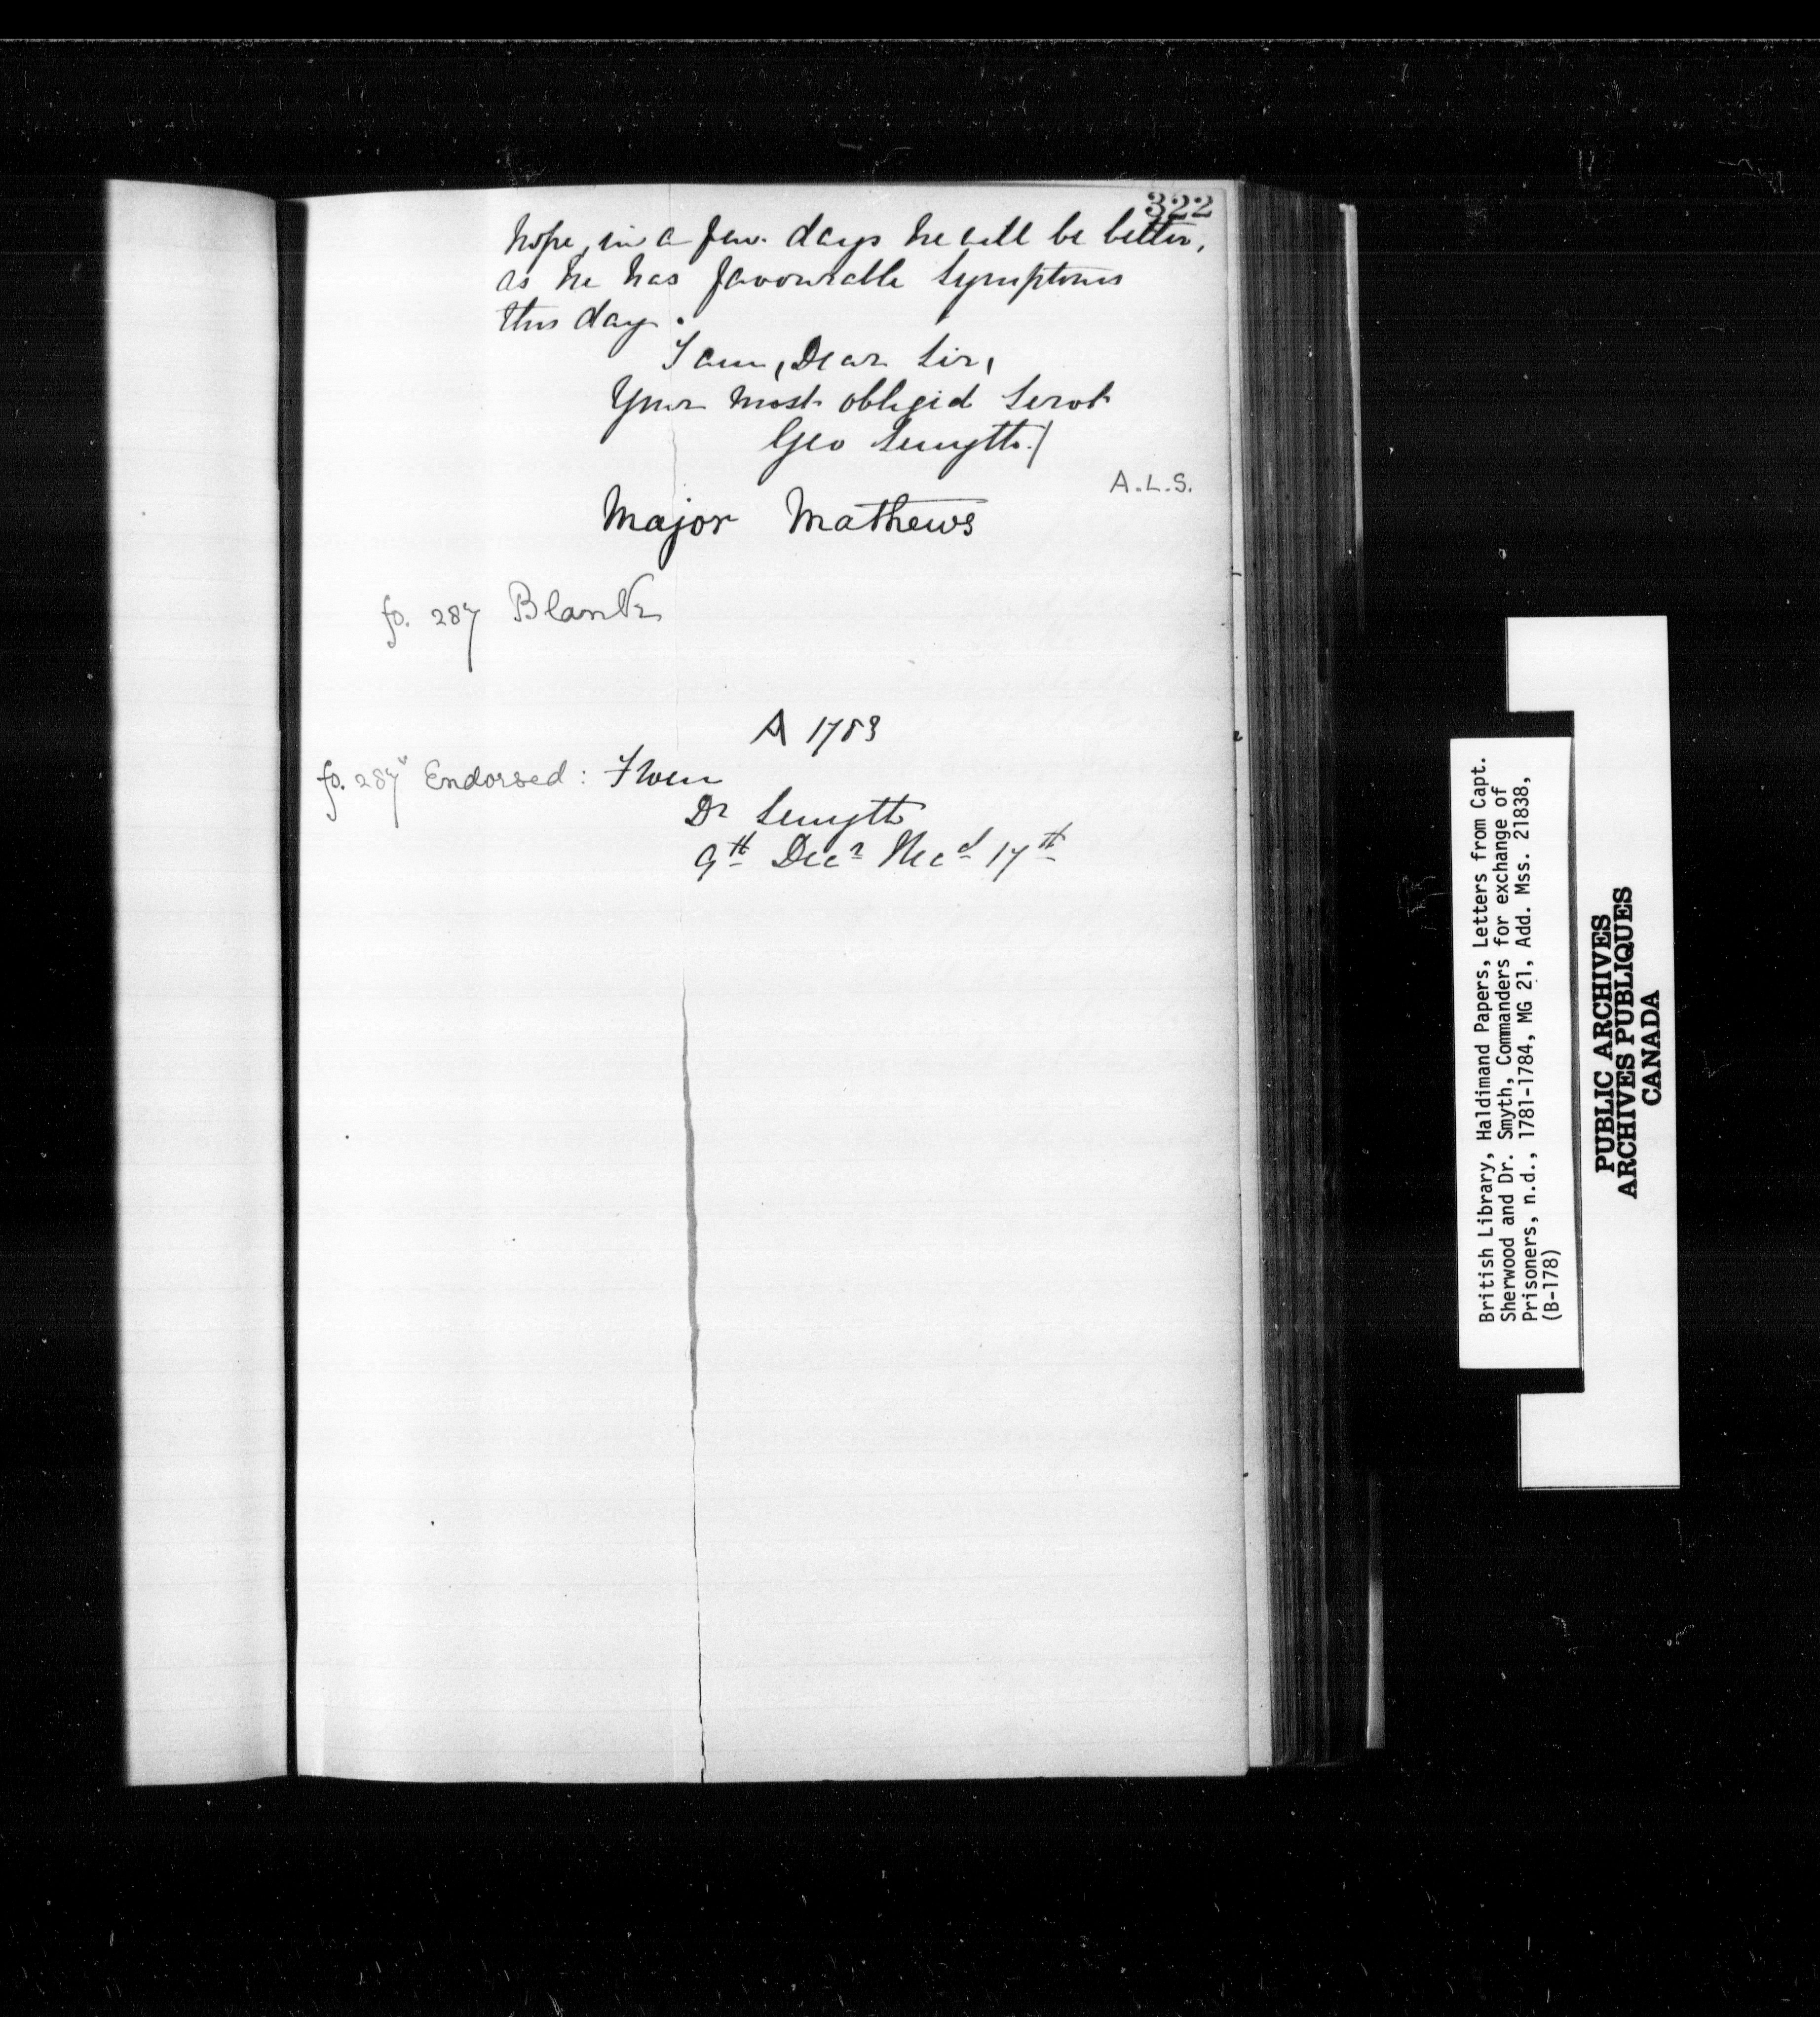 322
hope, in a few days he will be better,
as he has favourable symptoms
this day.
I am, Dear Sir,
Your most obliged Servt
Geo Smyth /
A.L.S.
Major Mathews
fo. 287 Blank
A 1783
fo. 287v Endorsed: From
Dr Smyth
9th Decr Recd 17th
British Library, Haldimand Papers, Letters from Capt.
Sherwood and Dr. Smyth, Commanders for exchange of
Prisoners, n.d., 1781-1784, MG 21, Add. Mss. 21838,
(B-178)
PUBLIC ARCHIVES
ARCHIVES PUBLIQUES
CANADA